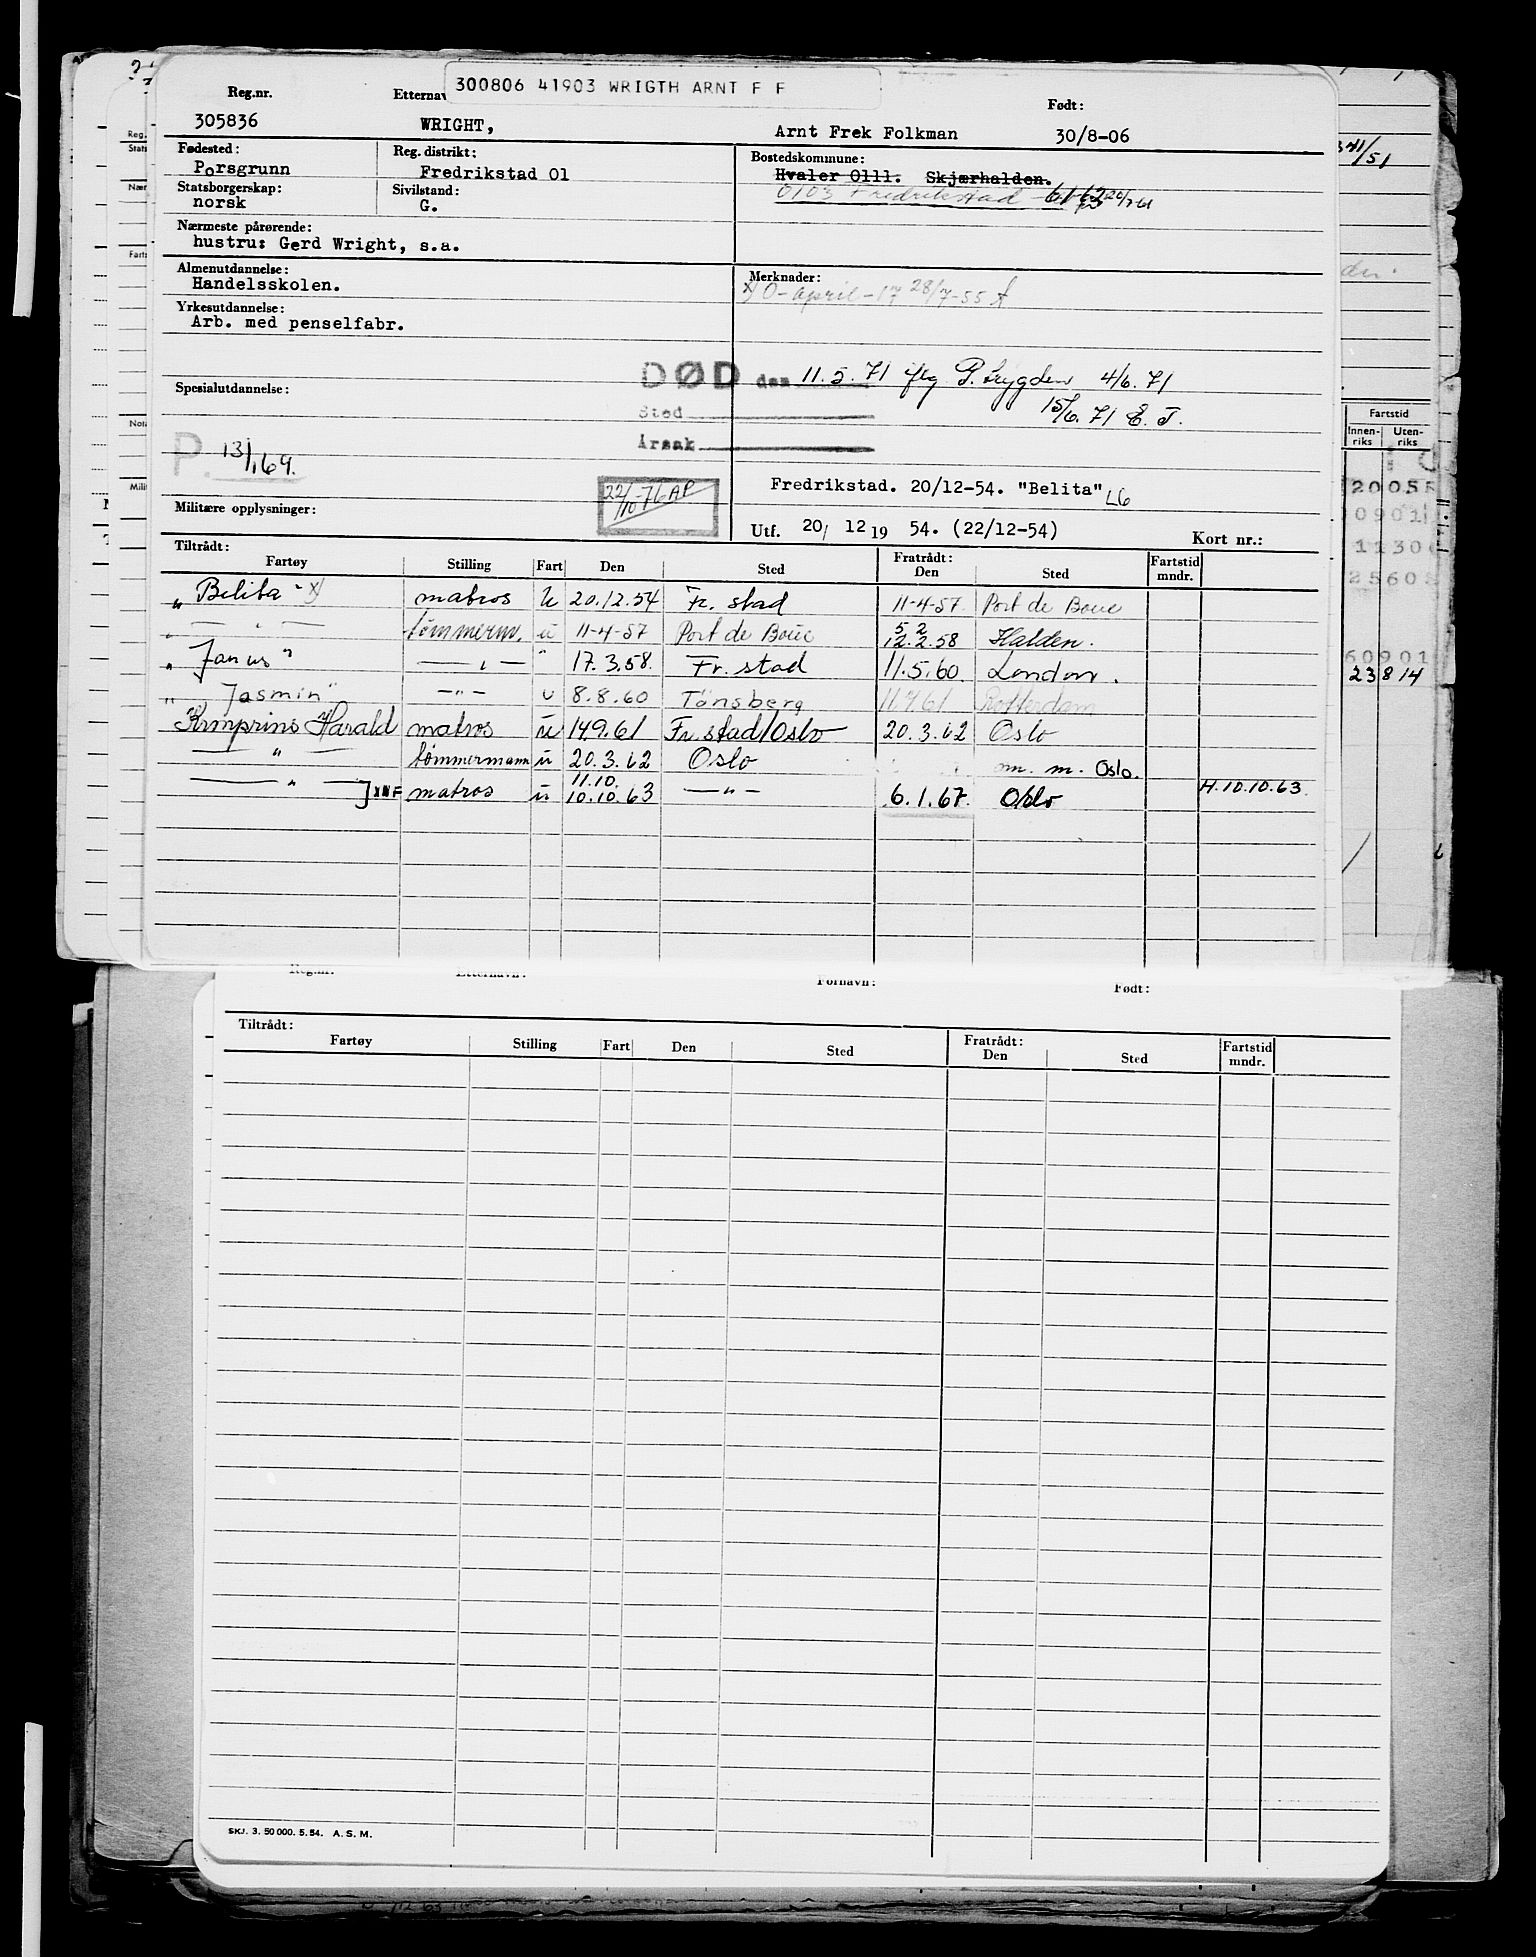 300806 41903 WRIGTH ARNT F F
Reg.nr. Etternav Født:
305836 WRIGHT, Arnt Frek Folkman 30/8-06
Fødested: Reg. distrikt: Bostedskommune:
Porsgrunn Fredrikstad 01 Hvaler 0111. Skjærhalden.
Statsborgerskap: Sivilstand: 0103 Fredrikstad
norsk G.
Nærmeste pårørende:
hustru: Gerd Wright, s.a.
Almenutdannelse: Merknader:
Handelsskolen. x) O-april-17 28/7-55
Yrkesutdannelse:
Arb. med penselfabr.
DØD den 11.5.71 flg P. trygden 4/6.71
Spesialutdannelse: 15/6.71 E.J.
Sted
Årsak
P. 13/1 69.
22/10-76 AP
Fredrikstad. 20/12-54. "Belita" L6
Militære opplysninger:
Utf. 20/ 12 19 54. (22/12-54) Kort nr.:
Tiltrådt: Fratrådt:
Fartøy Stilling Fart Den Sted Den Sted Fartstid mndr.
"Belita" x) matros u 20.12.54 Fr. stad 11-4-57 Port de Bouc
— " — tømmerm. u 11-4-57 Port de Bouc 12.2.58 Halden.
5 2
"Janus" — " — " 17.3.58. Fr. stad 11.5.60. London.
"Jasmin" — " — u 8.8.60 Tønsberg 11.4.61 Rotterdam
Kronprins Harald matros u 14.9.61 Fr. stad/Oslo 20.3.62 Oslo
— " — tømmermann u 20.3.62 Oslo m. m. Oslo.
11.10.
— " — matros u 10.10.63 — " — 6.1.67. Oslo H.10.10.63.
Fartstid
Innen-riks Uten-riks
23 8 14
Reg.nr. Etternavn: Fornavn: Født:
Tiltrådt: Fratrådt:
Fartøy Stilling Fart Den Sted Den Sted Fartstid mndr.
SKJ. 3. 50 000. 5. 54. A. S. M.